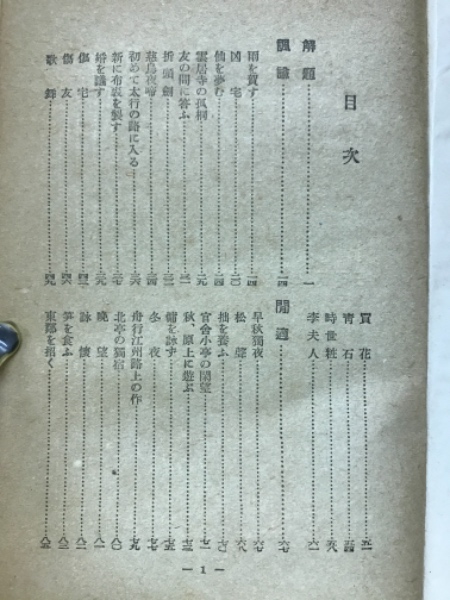 目次
解題……一
諷諭……一四
雨を賀す……一四
凶宅……二〇
仙を夢む……二四
雲居寺の孤桐……二九
友の問に答ふ……三一
折頭劍……三二
慈烏夜啼……三四
初めて太行の路に入る……三六
新に布裘を製す……三七
婚を議す……三九
傷宅……四三
傷友……四六
歌舞……四九
買花……五一
青石……五四
時世粧……五八
李夫人……六一
閒適……六七
早秋獨夜……六七
松聲……六八
拙を養ふ……七〇
官舍小亭の閑望……七一
秋、原上に遊ぶ……七三
慵を詠ず……七五
冬夜……七七
舟行江州路上の作……七九
北亭の獨宿……八〇
晚望……八一
詠懷……八二
笋を食ふ……八三
東鄰を招く……八五
— 1 —